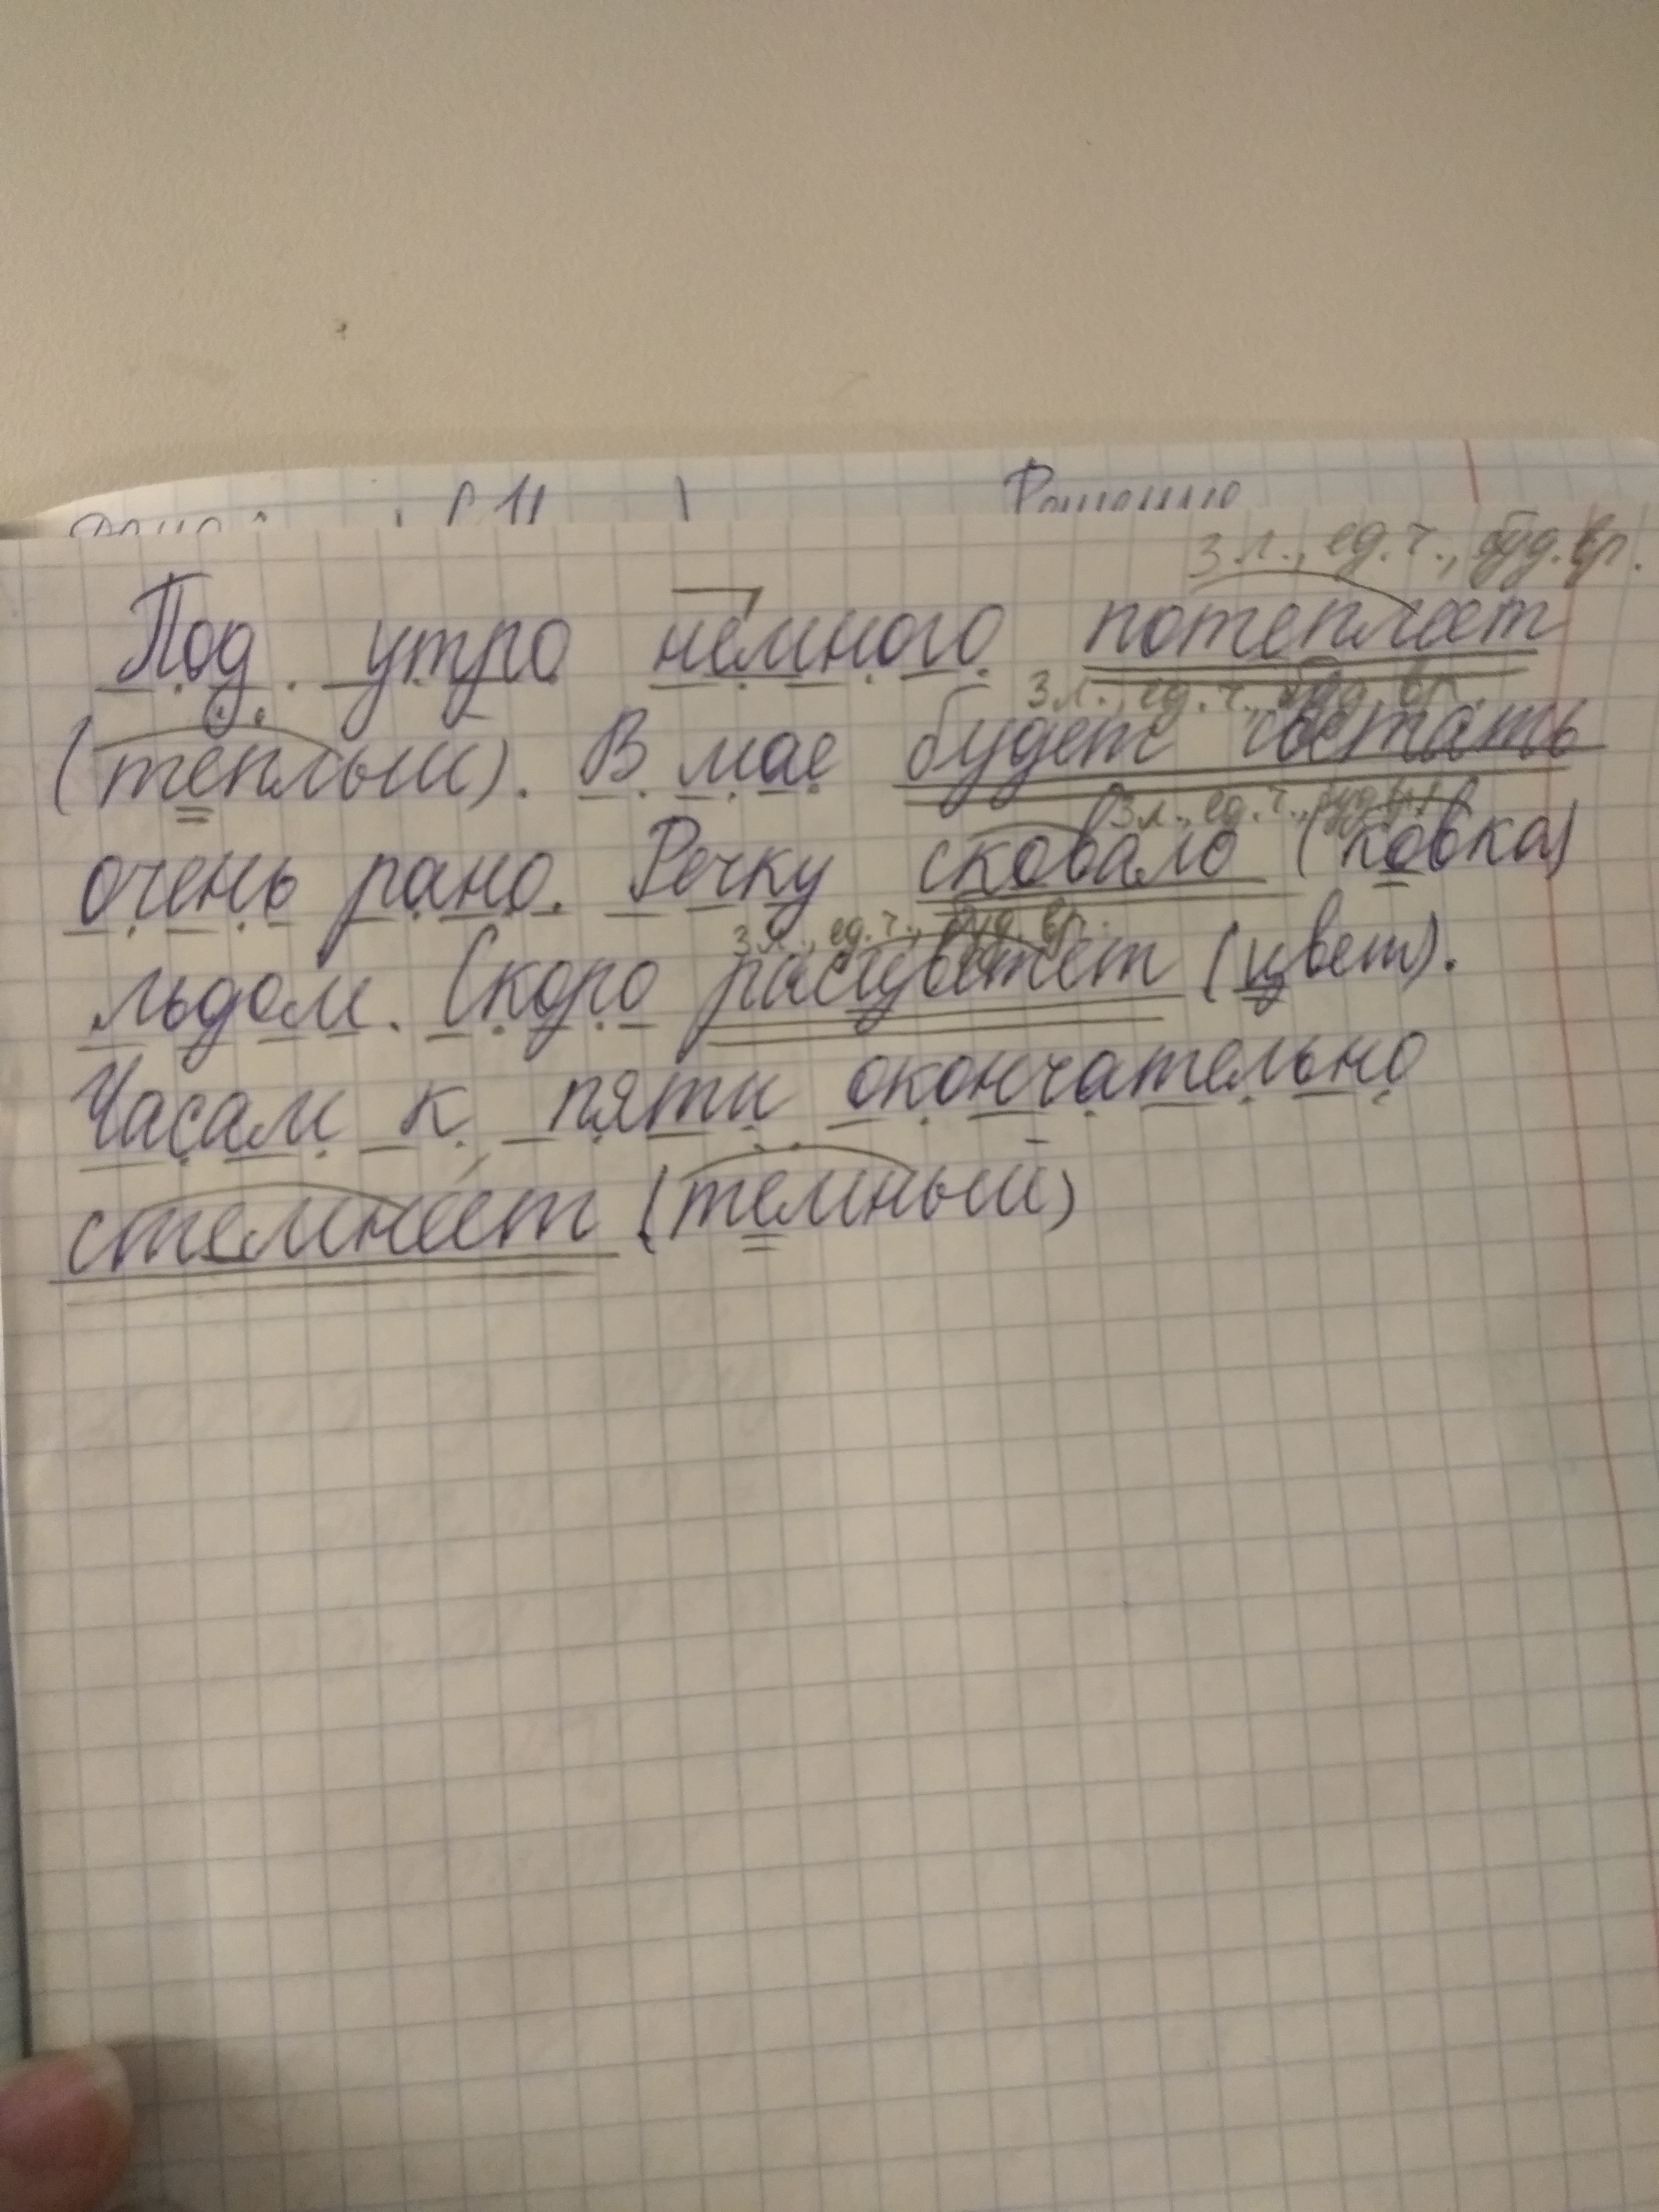 3 л., ед. ч., буд. вр.
Под утро немного потеплеет
3 л., ед. ч., буд. вр.
(тёплый). В мае будет светать
3 л., ед. ч., буд. вр.
очень рано. Речку сковало (ковка)
3 л., ед. ч., буд. вр.
льдом. Скоро расцветет (цвет).
Часам к пяти окончательно
стемнеет (темный)